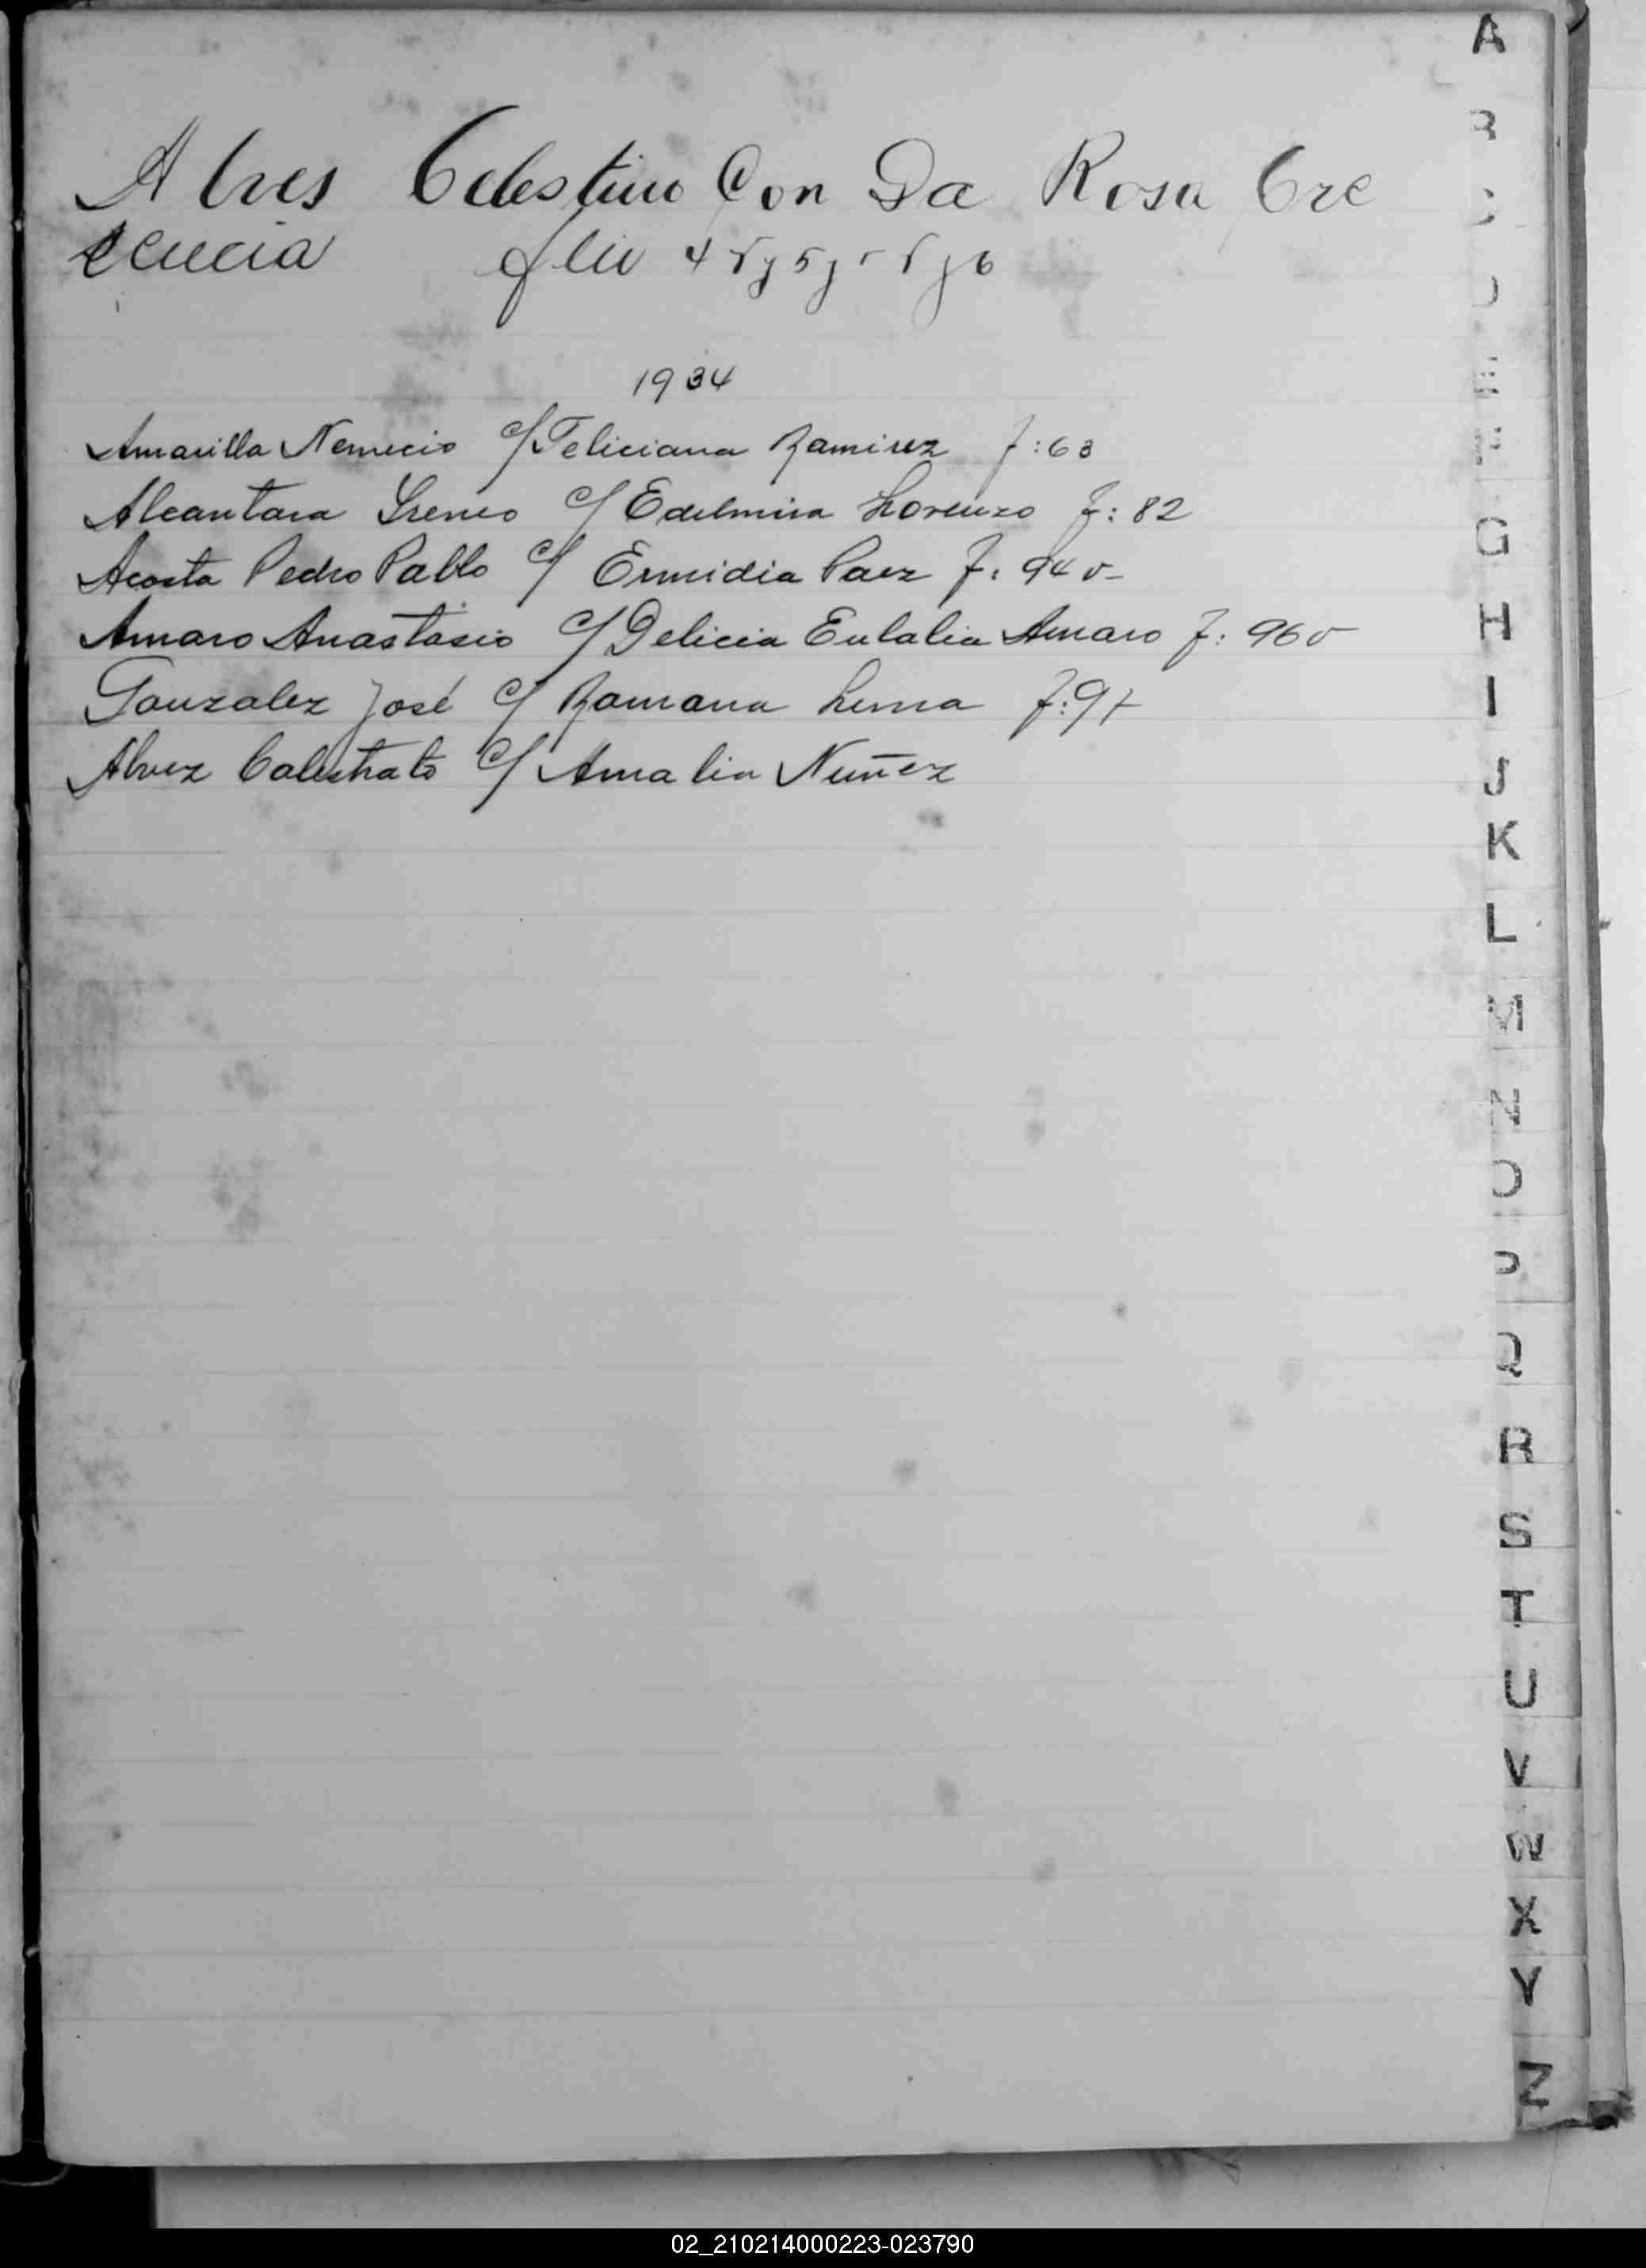 A
Alves Celestino Con Da Rosa Cre
cencia
1934
Amarilla Nemecio c/ Feliciana Ramirez f: 63
Alcantara Ireneo c/ Edelmira Lorenzo f: 82
Acosta Pedro Pablo c/ Ermidia Paez f: 94 v-
Amaro Anastasio c/ Delicia Eulalia Amaro f: 96 v
Gonzalez José c/ Ramona Lema f: 97
Alvez Calistrato c/ Amalia Nuñez
B
G
H
I
J
K
L
M
N
O
P
Q
R
S
T
U
V
W
X
Y
Z
02_210214000223-023790